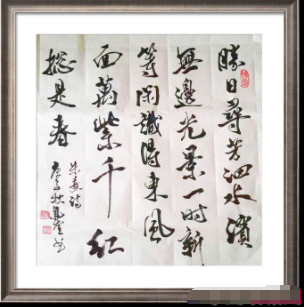 勝日尋芳泗水濱
無邊光景一時新
等閑識得東風
面萬紫千紅
總是春
朱熹詩